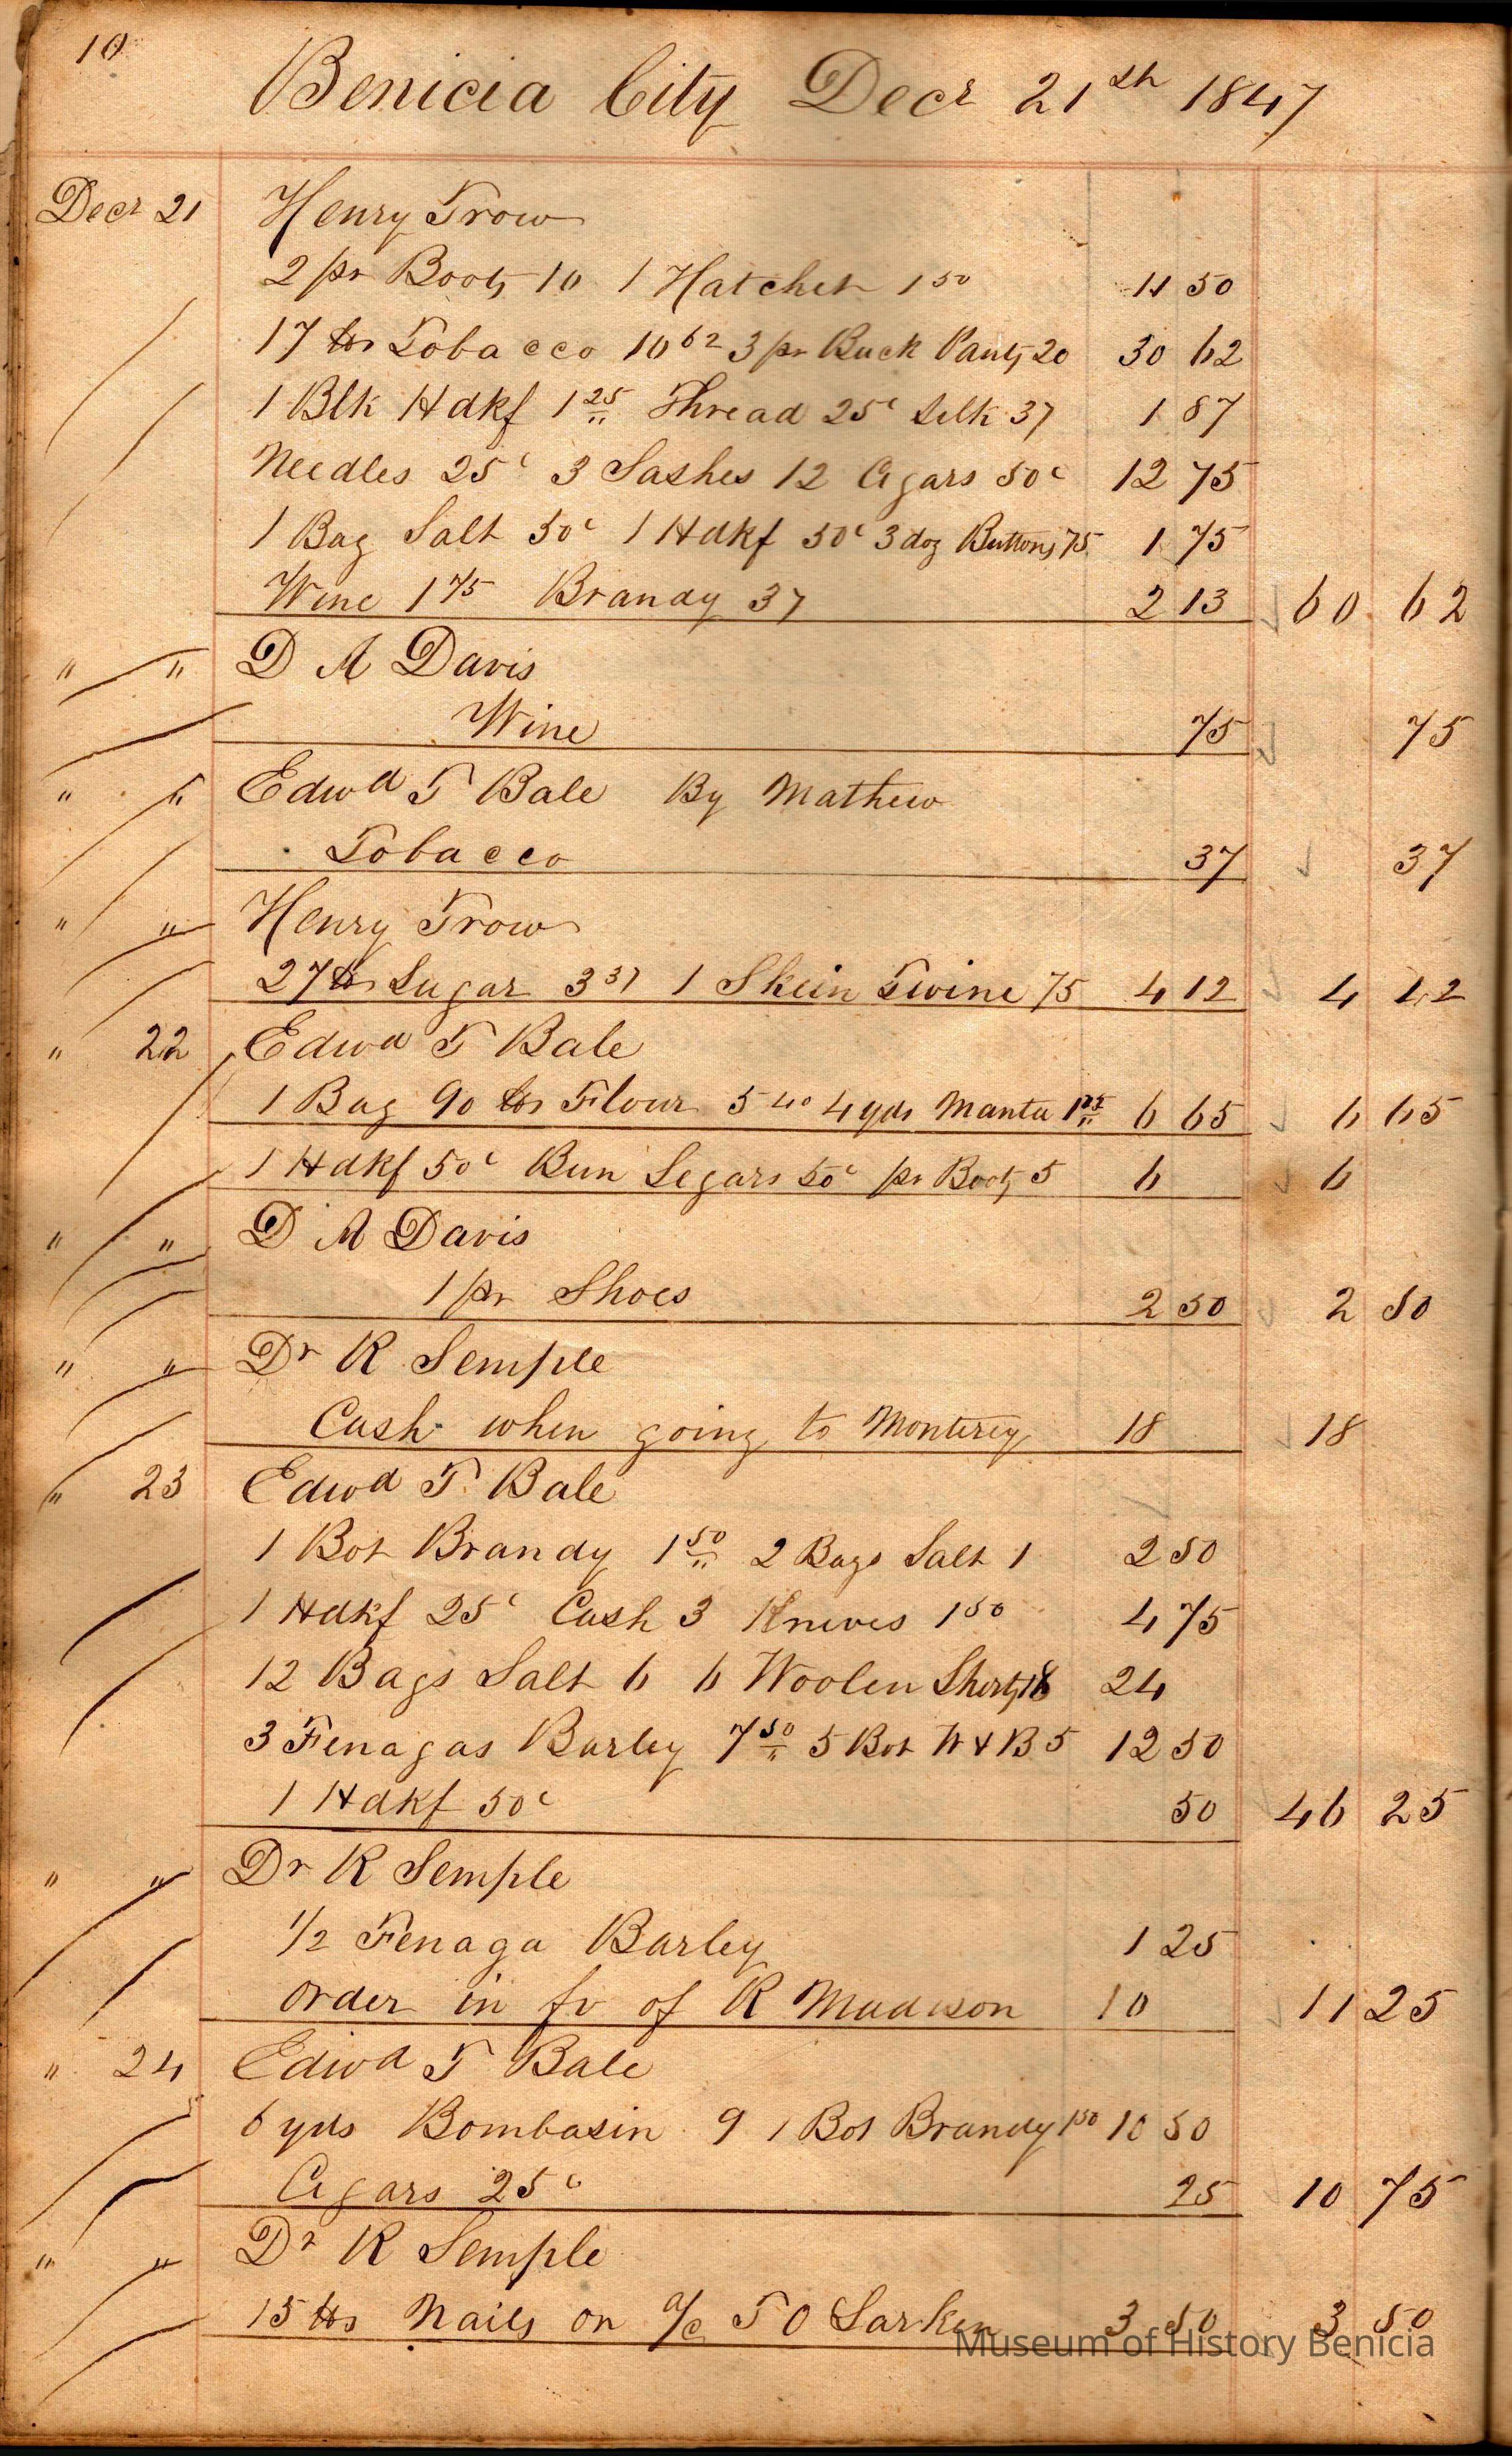 10
Benicia City Decr 21th 1847
Decr 21 Henry Trow
2 pr Boots 10 1 Hatchet 1 50 11 50
17 lbs Tobacco 10 62 3 pr Buck Pants 20 30 62
1 Blk Hdkf 1 25 Thread 25c Silk 37 1 87
Needles 25c 3 Sashes 12 Cigars 50c 12 75
1 Bag Salt 50c 1 Hdkf 50c 3 doz Buttons 75 1 75
Wine 1 75 Brandy 37 2 13 60 62
" " D A Davis
Wine 75 75
" " Edwd T Bale By Mathew
Tobacco 37 37
" " Henry Trow
27 lbs Sugar 3 37 1 Skein Twine 75 4 12 4 12
" 22 Edwd T Bale
1 Bag 90 lbs Flour 5 40 4 yds Manta 1 25 6 65 6 65
1 Hdkf 50c Bun Segars 50c pr Boots 5 6 6
" " D A Davis
1 pr Shoes 2 50 2 50
" " Dr R Semple
Cash when going to Monterey 18 18
" 23 Edwd T Bale
1 Bot Brandy 1 50 2 Bags Salt 1 2 50
1 Hdkf 25c Cash 3 Knives 1 50 4 75
12 Bags Salt 6 6 Woolen Shirts 18 24
3 Fenagas Barley 7 50 5 Bot W & B 5 12 50
1 Hdkf 50c 50 46 25
" " Dr R Semple
1/2 Fenaga Barley 1 25
order in fv of R Madison 10 11 25
" 24 Edwd T Bale
6 yds Bombasin 9 1 Bot Brandy 1 50 10 50
Cigars 25c 25 10 75
" " Dr R Semple
15 lbs Nails on a/c T O Larken 3 50 3 50
Museum of History Benicia